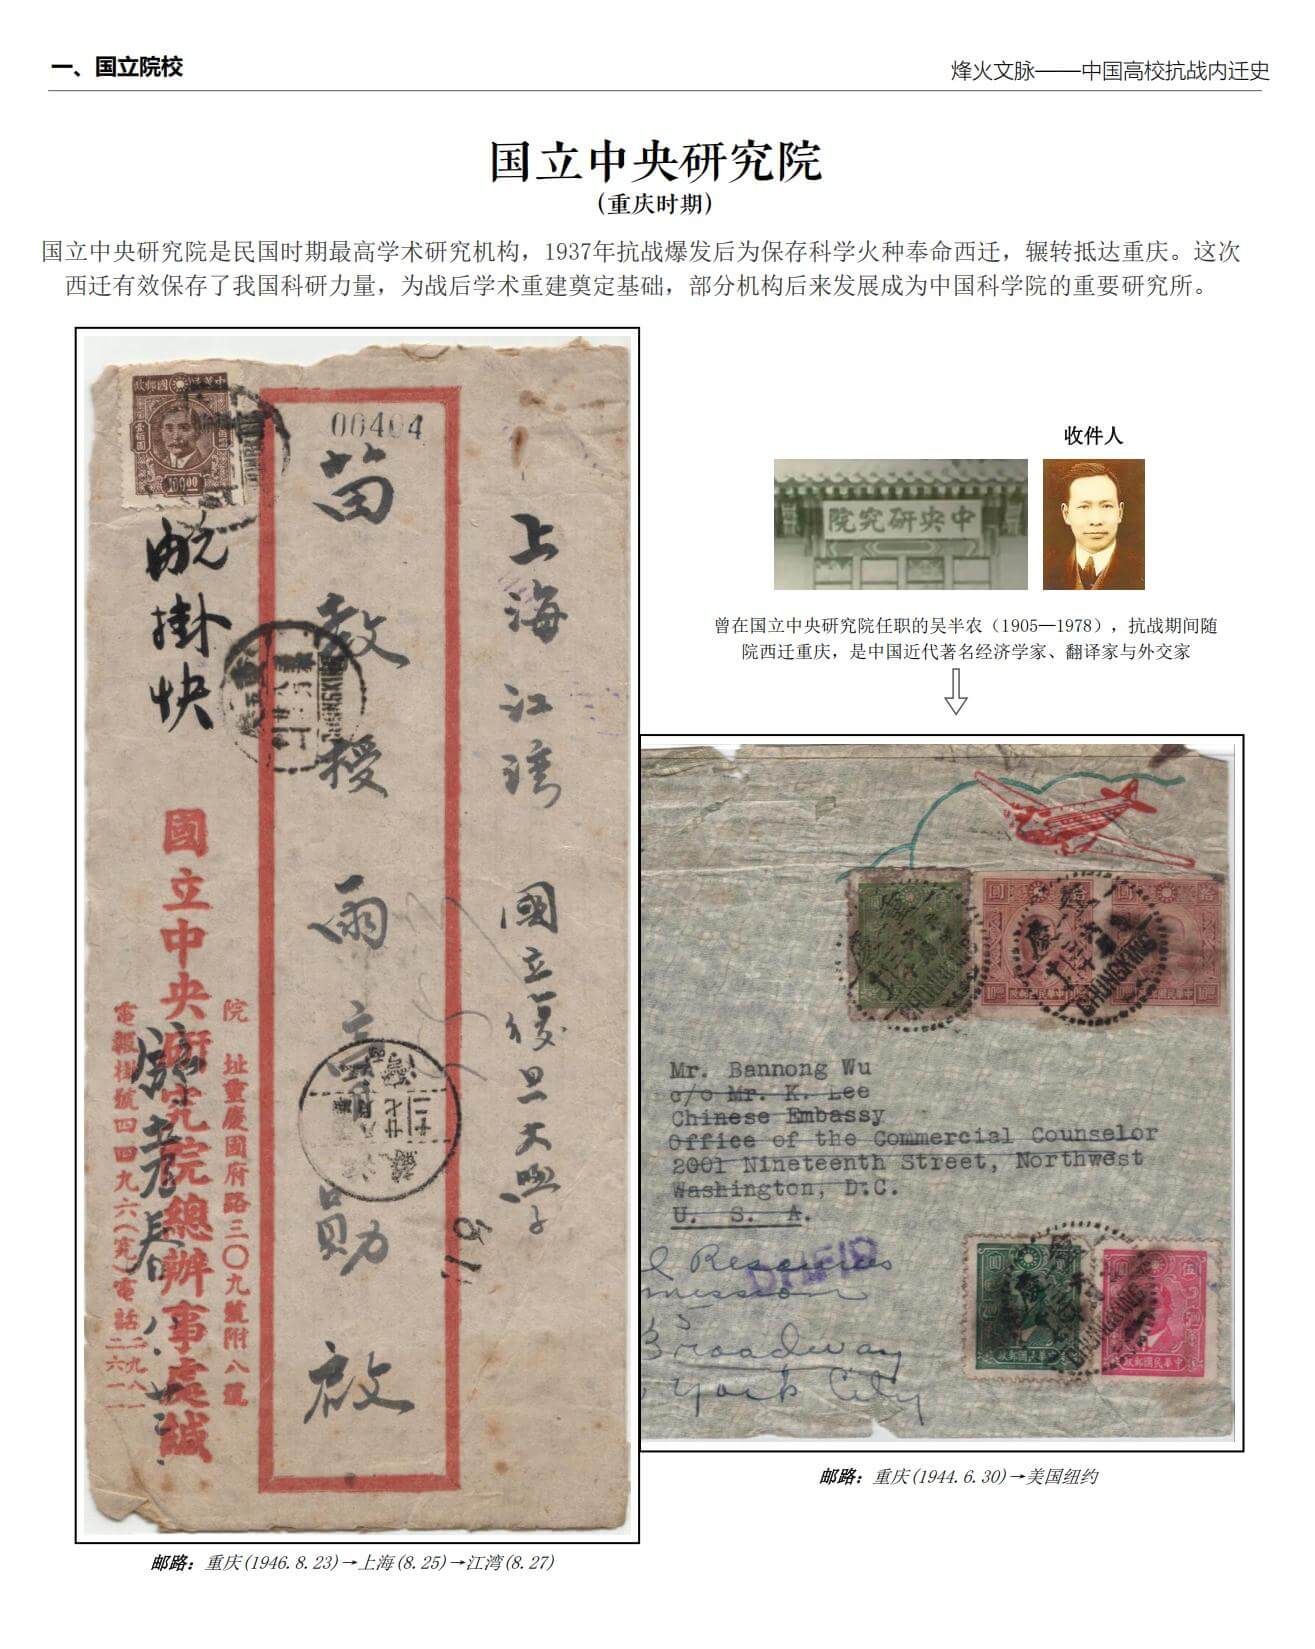 一、国立院校
烽火文脉——中国高校抗战内迁史
国立中央研究院
（重庆时期）
国立中央研究院是民国时期最高学术研究机构，1937年抗战爆发后为保存科学火种奉命西迁，辗转抵达重庆。这次
西迁有效保存了我国科研力量，为战后学术重建奠定基础，部分机构后来发展成为中国科学院的重要研究所。
政郵國 華中
壹佰圓
100.00
航掛快
00404
苗教授雨膏勛啟
上海江灣 國立復旦大學
國立中央研究院總辦事處緘
院址重慶國府路三〇九號附八號
電報掛號四四九六(寬)電話二九八一
二六一一
CHUNGKING
收件人
院究研央中
曾在国立中央研究院任职的吴半农（1905—1978），抗战期间随
院西迁重庆，是中国近代著名经济学家、翻译家与外交家
CHUNGKING
CHUNGKING
Mr. Bannong Wu
c/o Mr. K. Lee
Chinese Embassy
Office of the Commercial Counselor
2001 Nineteenth Street, Northwest
Washington, D.C.
U. S. A.
Resources
mission
5
Broadway
York City
政郵國民華中
政郵國民華中
CHUNGKING
邮路：重庆(1944.6.30)→美国纽约
邮路：重庆(1946.8.23)→上海(8.25)→江湾(8.27)